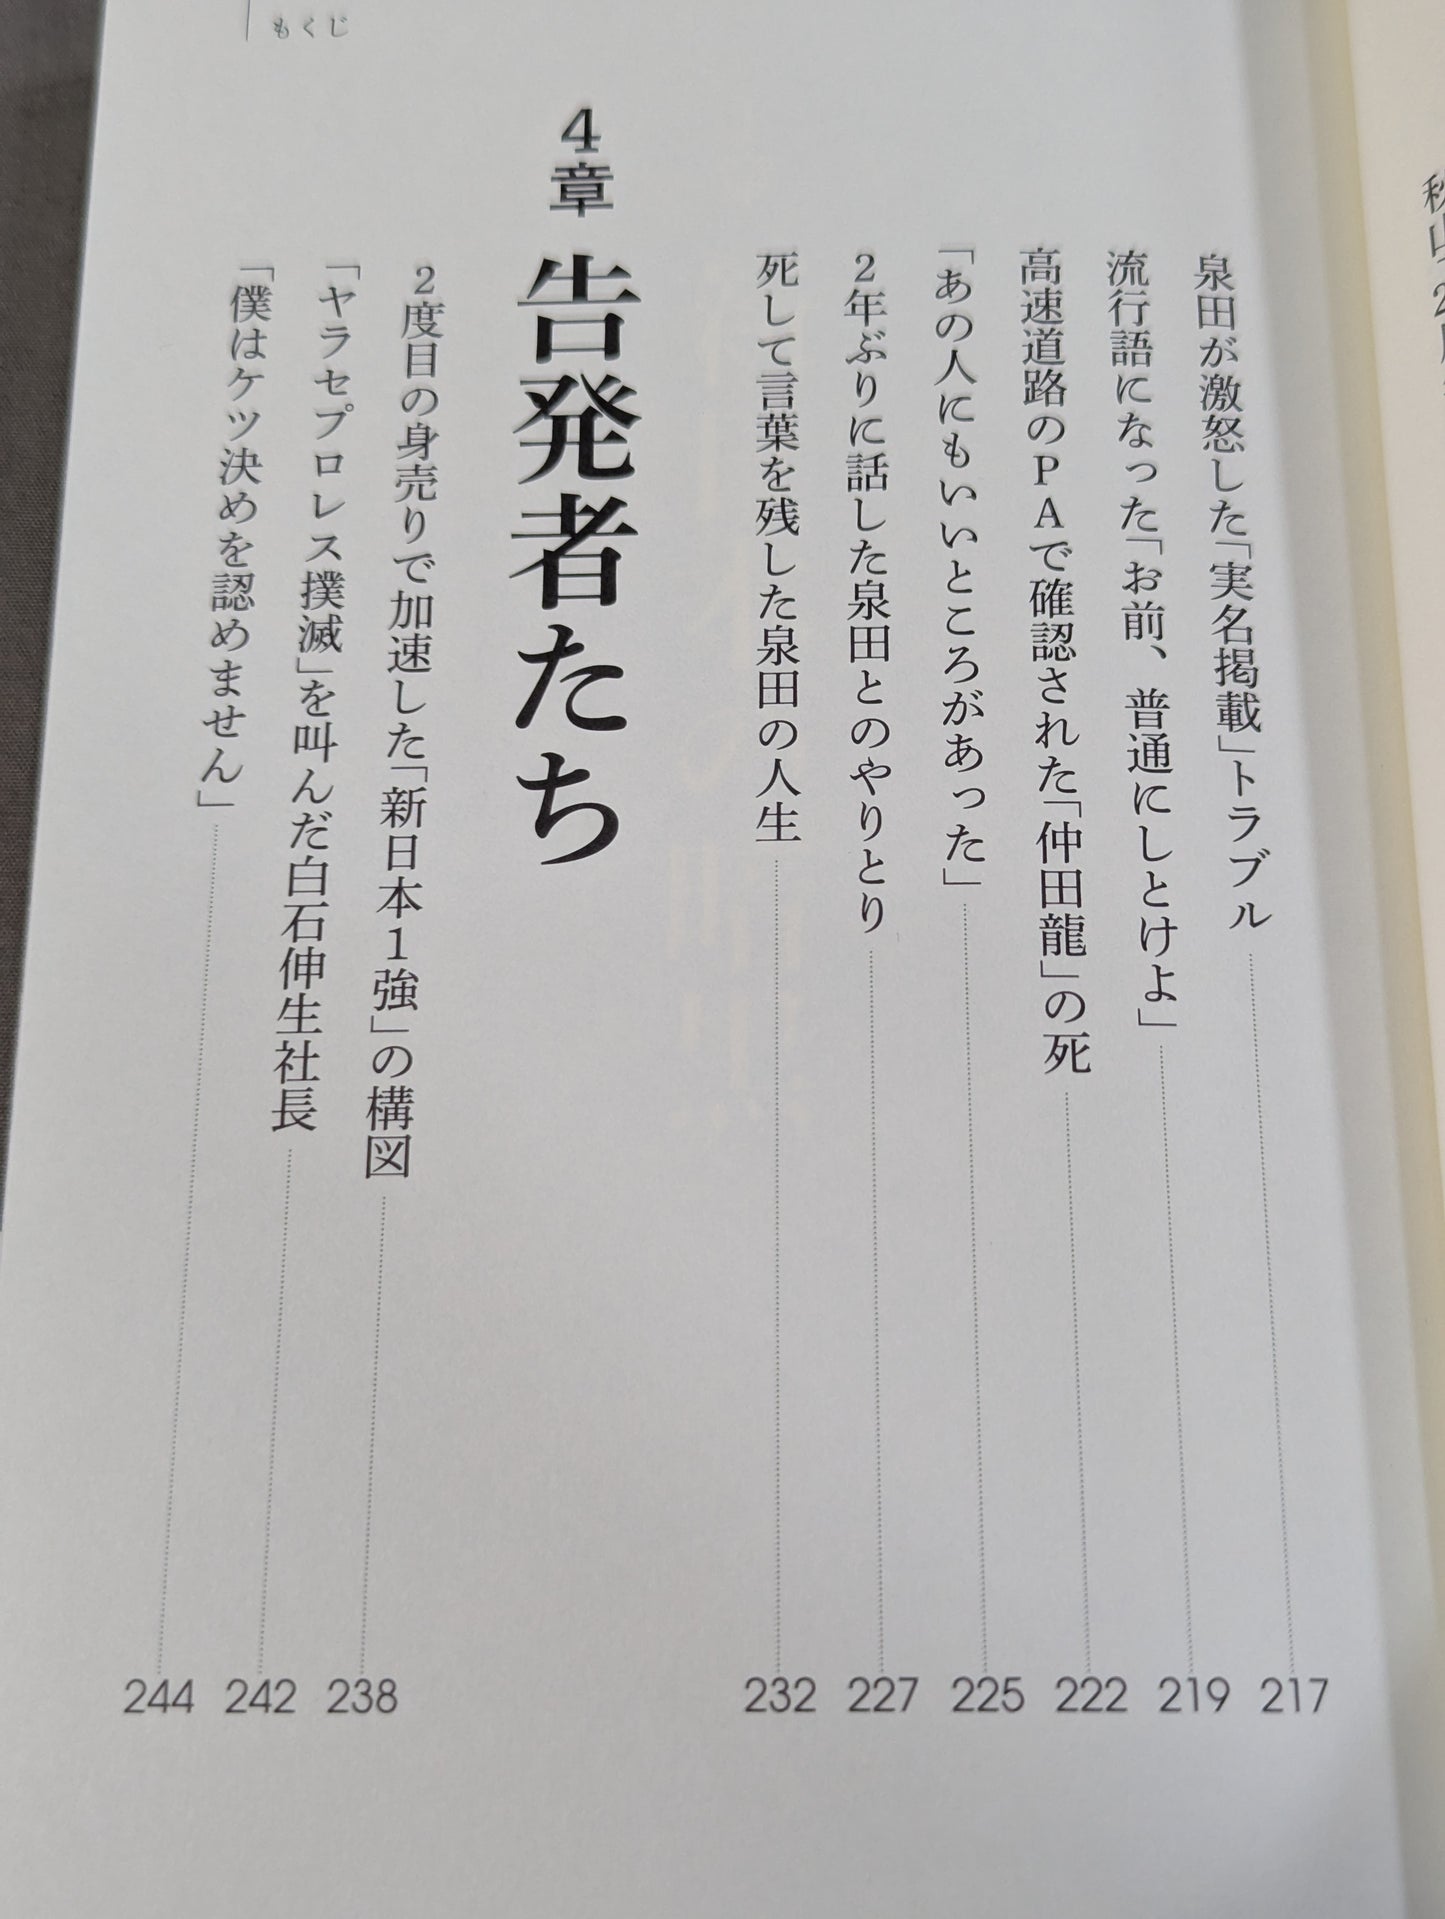 もくじ
泉田が激怒した「実名掲載」トラブル 217
流行語になった「お前、普通にしとけよ」 219
高速道路のPAで確認された「仲田龍」の死 222
「あの人にもいいところがあった」 225
2年ぶりに話した泉田とのやりとり 227
死して言葉を残した泉田の人生 232
4章 告発者たち
2度目の身売りで加速した「新日本1強」の構図 238
「ヤラセプロレス撲滅」を叫んだ白石伸生社長 242
「僕はケツ決めを認めません」 244